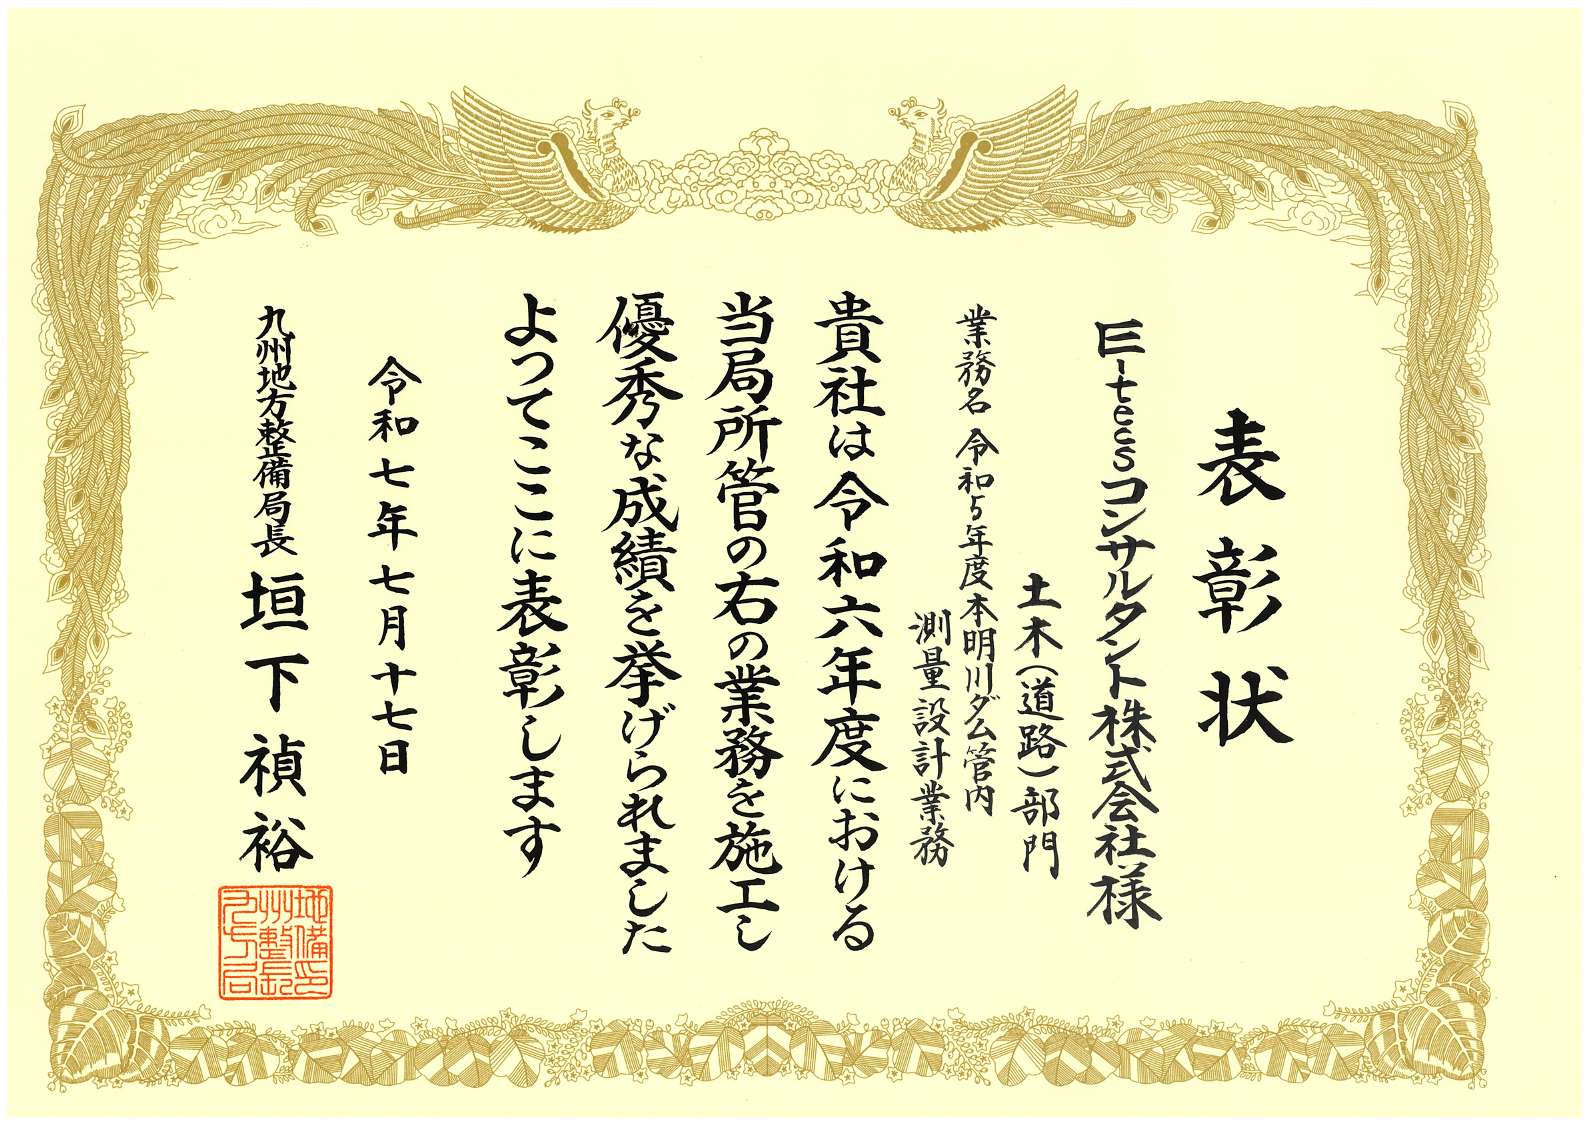 表彰状
E-tecsコンサルタント株式会社様
土木(道路)部門
業務名 令和5年度本明川ダム管内
測量設計業務
貴社は令和六年度における
当局所管の右の業務を施工し
優秀な成績を挙げられました
よってここに表彰します
令和七年七月十七日
九州地方整備局長 垣下禎裕
九州地方整備局長印